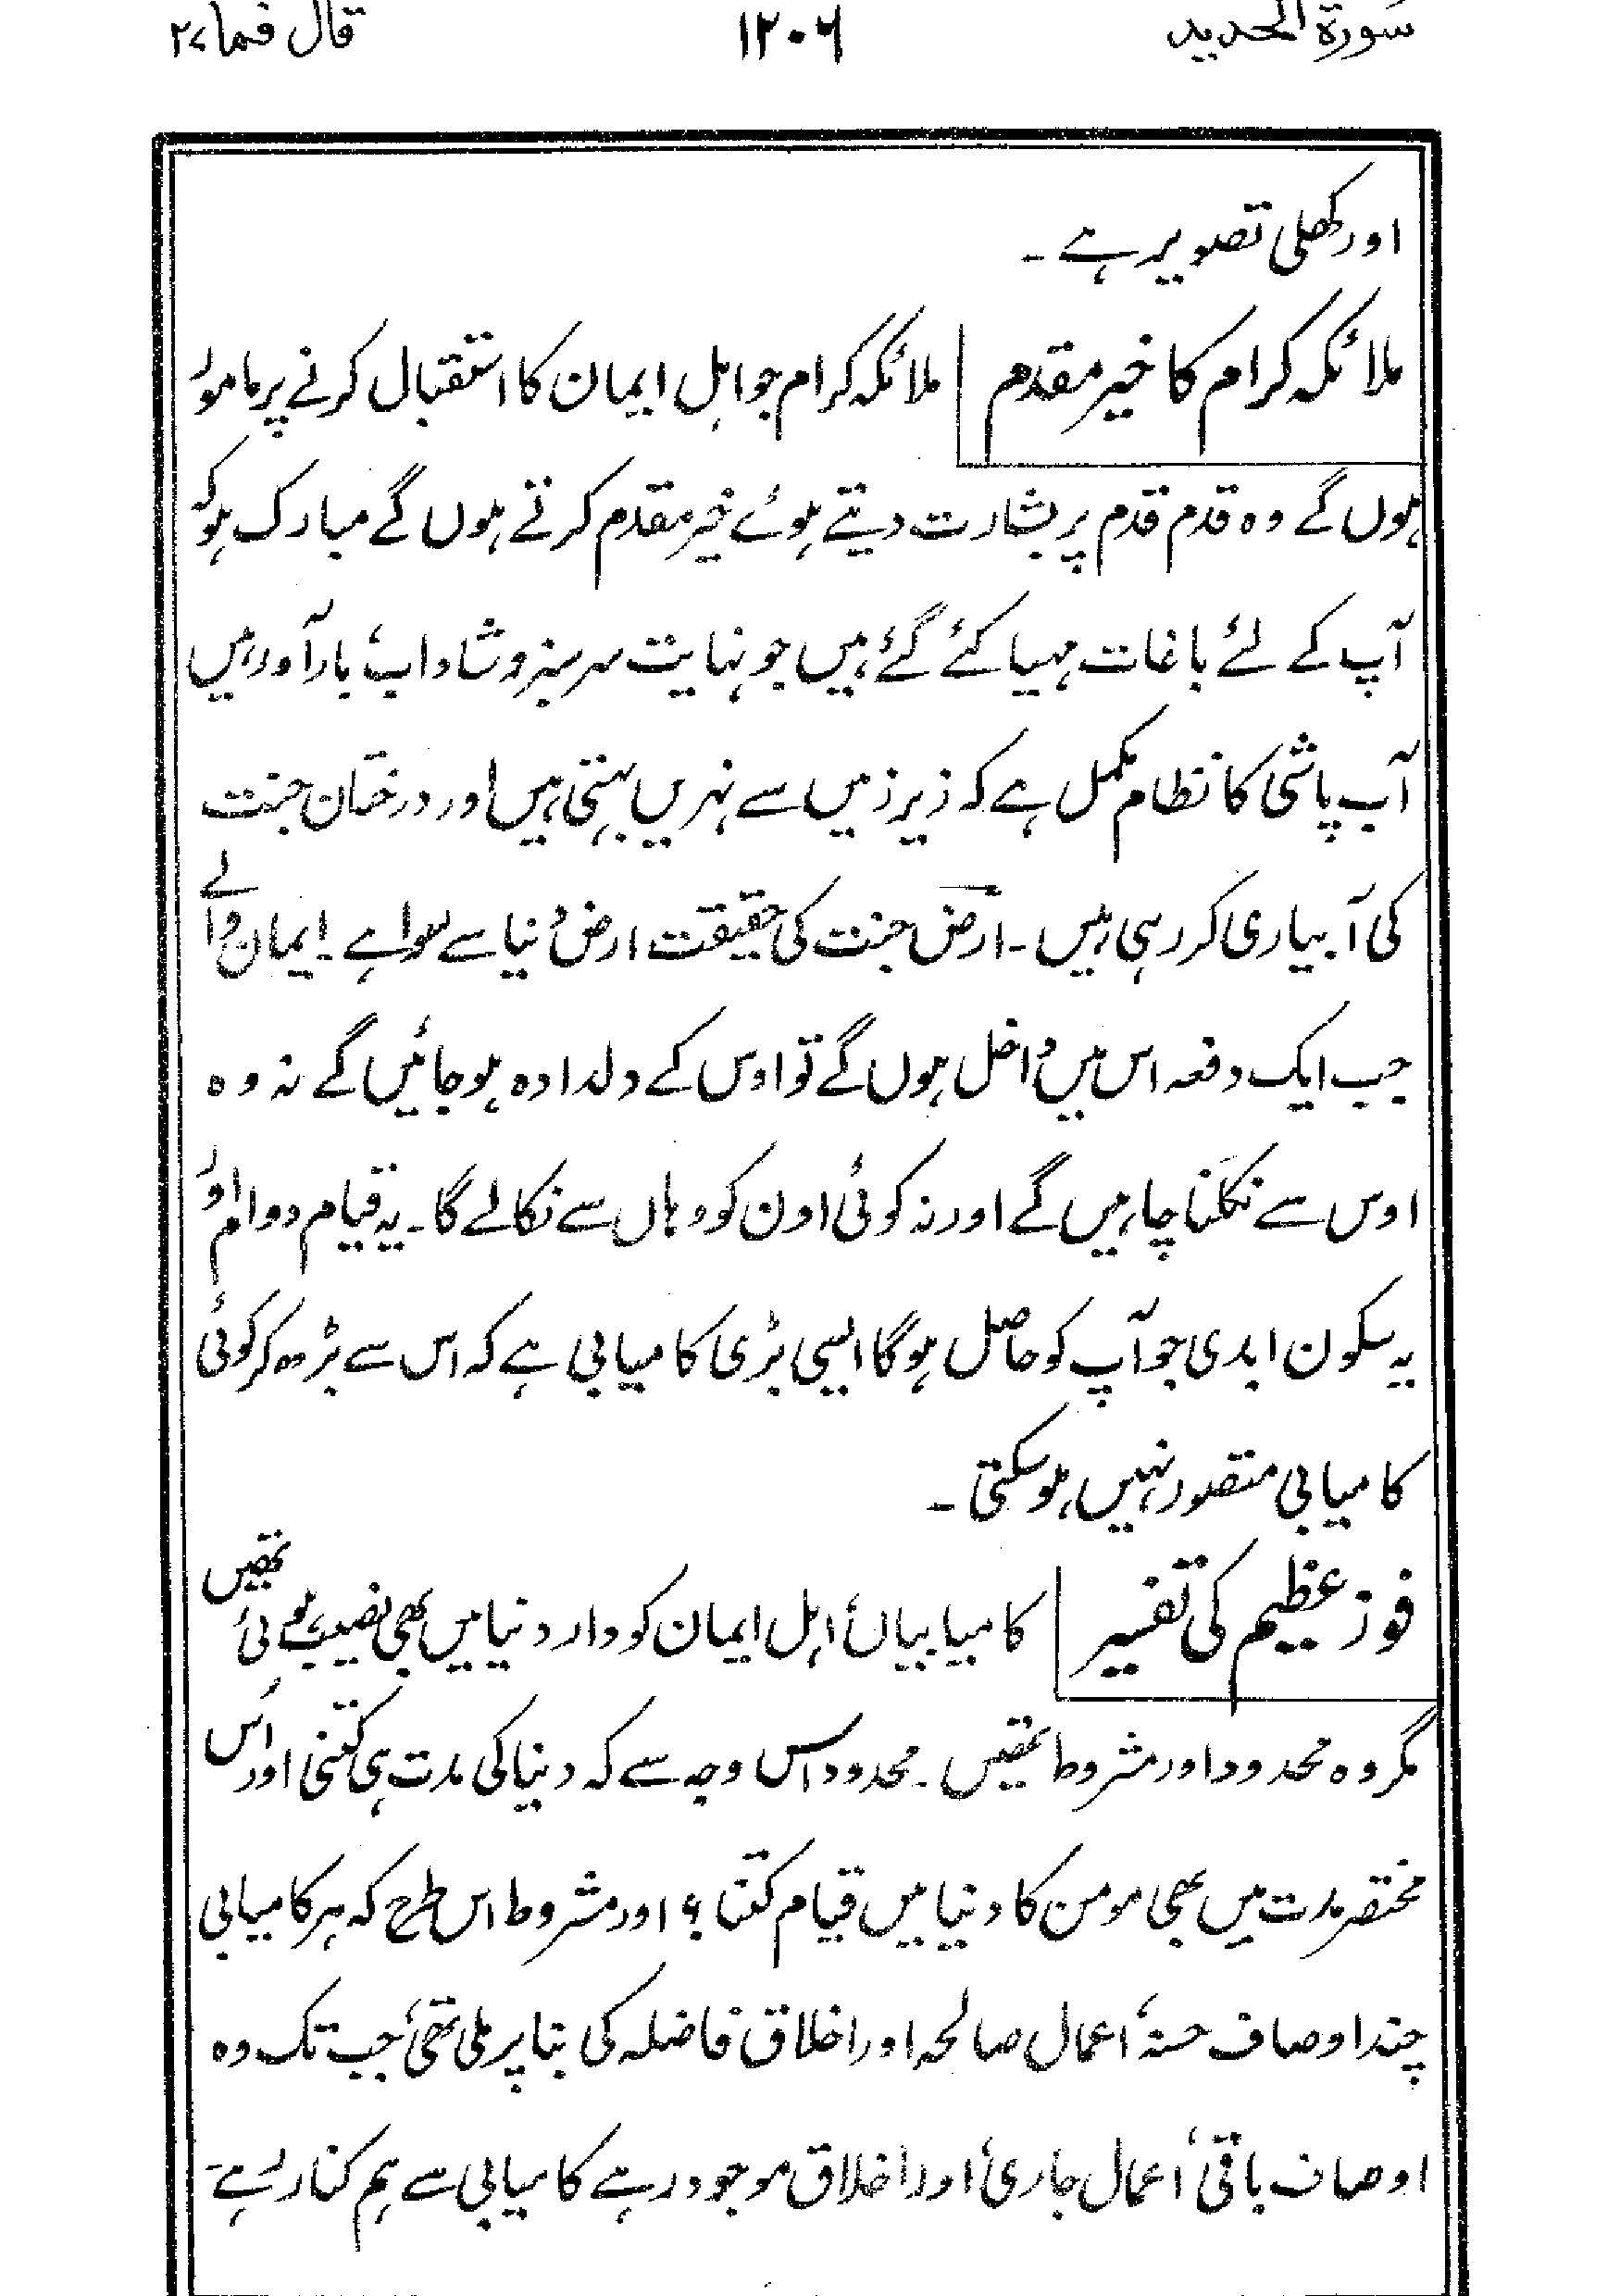 سورة الحديد ۱۲۰۶ قال فما ۲۷
اور کھلی تصویر ہے ۔
ملائکہ کرام کا خیر مقدم ملائکہ کرام جو اہل ایمان کا استقبال کرنے پر مامور
ہوں گے وہ قدم قدم پر بشارت دیتے ہوئے خیر مقدم کرتے ہوں گے مبارک ہو کہ
آپ کے لئے باغات مہیا کئے گئے ہیں جو نہایت سرسبز و شاداب، بار آور ہیں
آب پاشی کا نظام مکمل ہے کہ زیر زمیں سے نہریں بہتی ہیں اور درختان جنت
کی آبیاری کر رہی ہیں ۔ ارض جنت کی حقیقت ارض دنیا سے سوا ہے ۔ ایمان والے
جب ایک دفعہ اس میں داخل ہوں گے تو اوس کے دلدادہ ہو جائیں گے نہ وہ
اوس سے نکلنا چاہیں گے اور نہ کوئی اون کو وہاں سے نکالے گا ۔ یہ قیام دوام اور
یہ سکون ابدی جو آپ کو حاصل ہو گا ایسی بڑی کامیابی ہے کہ اس سے بڑھ کر کوئی
کامیابی متصور نہیں ہو سکتی ۔
فوز عظیم کی تفسیر کامیابیاں اہل ایمان کو دار دنیا میں بھی نصیب ہوئی تھیں
مگر وہ محدود اور مشروط تھیں ۔ محدود اس وجہ سے کہ دنیا کی مدت ہی کتنی اور اس
مختصر مدت میں بھی مومن کا دنیا میں قیام کتنا ؟ اور مشروط اس طرح کہ ہر کامیابی
چند اوصاف حسنہ، اعمال صالحہ اور اخلاق فاضلہ کی بنا پر ملی تھی، جب تک وہ
اوصاف باقی، اعمال جاری، اور اخلاق موجود رہے کامیابی سے ہم کنار رہے ۔